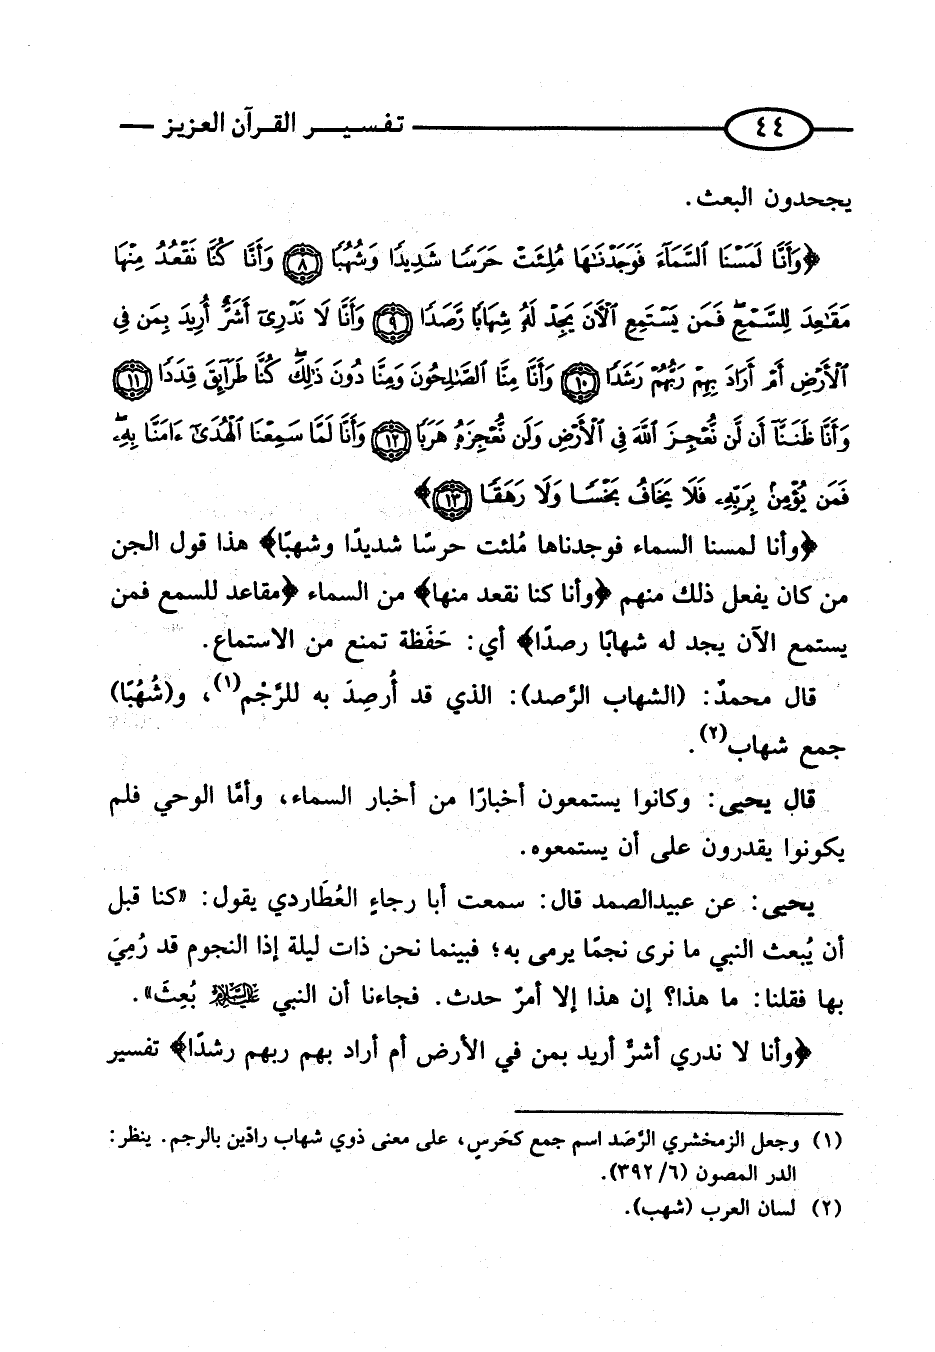 ٤٤ تفسير القرآن العزيز
يجحدون البعث.
﴿وَأَنَّا لَمَسْنَا ٱلسَّمَآءَ فَوَجَدْنَٰهَا مُلِئَتْ حَرَسًا شَدِيدًا وَشُهُبًا ۝٨ وَأَنَّا كُنَّا نَقْعُدُ مِنْهَا
مَقَٰعِدَ لِلسَّمْعِۖ فَمَن يَسْتَمِعِ ٱلْآنَ يَجِدْ لَهُۥ شِهَابًا رَّصَدًا ۝٩ وَأَنَّا لَا نَدْرِىٓ أَشَرٌّ أُرِيدَ بِمَن فِى
ٱلْأَرْضِ أَمْ أَرَادَ بِهِمْ رَبُّهُمْ رَشَدًا ۝١٠ وَأَنَّا مِنَّا ٱلصَّٰلِحُونَ وَمِنَّا دُونَ ذَٰلِكَۖ كُنَّا طَرَآئِقَ قِدَدًا ۝١١
وَأَنَّا ظَنَنَّآ أَن لَّن نُّعْجِزَ ٱللَّهَ فِى ٱلْأَرْضِ وَلَن نُّعْجِزَهُۥ هَرَبًا ۝١٢ وَأَنَّا لَمَّا سَمِعْنَا ٱلْهُدَىٰٓ ءَامَنَّا بِهِۦۖ
فَمَن يُؤْمِنۢ بِرَبِّهِۦ فَلَا يَخَافُ بَخْسًا وَلَا رَهَقًا ۝١٣﴾
﴿وأنا لمسنا السماء فوجدناها مُلئت حرسًا شديدًا وشهبًا﴾ هذا قول الجن
من كان يفعل ذلك منهم ﴿وأنا كنا نقعد منها﴾ من السماء ﴿مقاعد للسمع فمن
يستمع الآن يجد له شهابًا رصدًا﴾ أي: حَفَظة تمنع من الاستماع.
قال محمدٌ: (الشهاب الرَّصد): الذي قد أُرصِدَ به للرَّجْم(١)، و(شُهُبًا)
جمع شهاب(٢).
قال يحيى: وكانوا يستمعون أخبارًا من أخبار السماء، وأمَّا الوحي فلم
يكونوا يقدرون على أن يستمعوه.
يحيى: عن عبدالصمد قال: سمعت أبا رجاءٍ العُطَاردي يقول: «كنا قبل
أن يُبعث النبي ما نرى نجمًا يرمى به؛ فبينما نحن ذات ليلة إذا النجوم قد رُمِيَ
بها فقلنا: ما هذا؟ إن هذا إلا أمرٌ حدث. فجاءنا أن النبي عليه السلام بُعِثَ».
﴿وأنا لا ندري أشرٌّ أريد بمن في الأرض أم أراد بهم ربهم رشدًا﴾ تفسير
(١) وجعل الزمخشري الرَّصَد اسم جمع كحَرسٍ، على معنى ذوي شهاب رادّين بالرجم. ينظر:
الدر المصون (٦/ ٣٩٢).
(٢) لسان العرب (شهب).